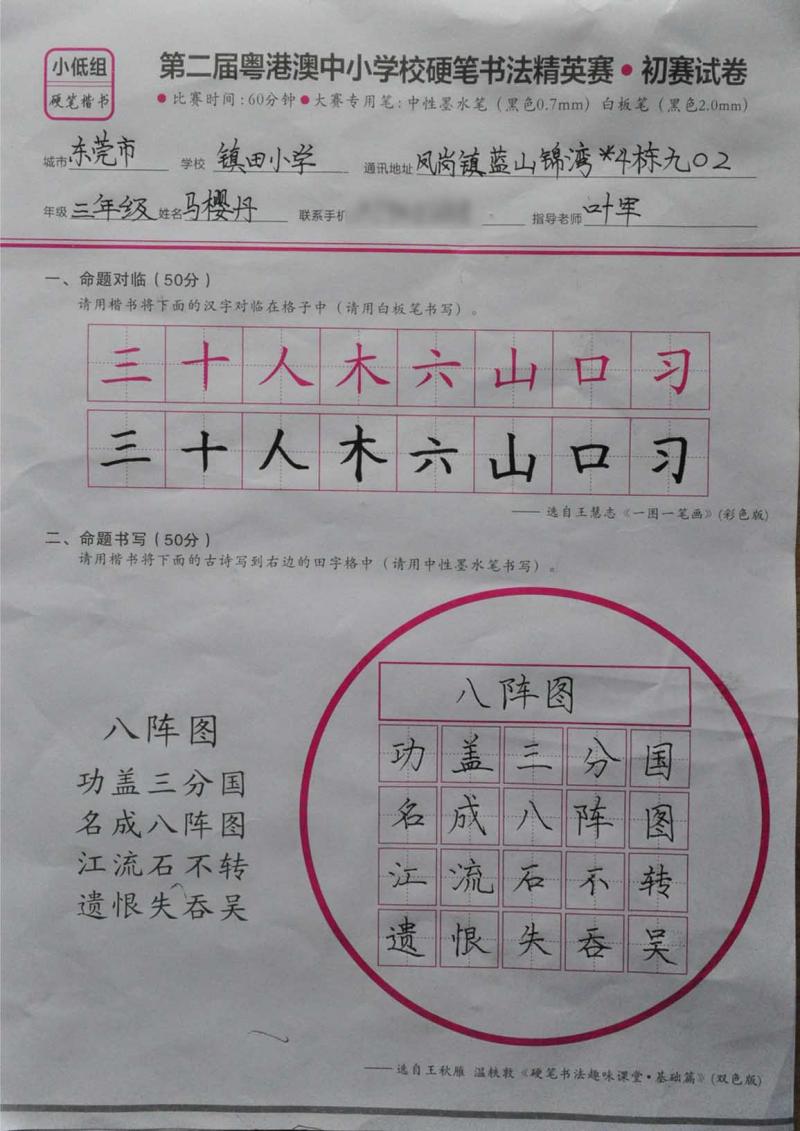 小低组
硬笔楷书
第二届粤港澳中小学校硬笔书法精英赛•初赛试卷
●比赛时间:60分钟●大赛专用笔:中性墨水笔（黑色0.7mm）白板笔（黑色2.0mm）
城市 东莞市 学校 镇田小学 通讯地址 凤岗镇蓝山锦湾*4栋九02
年级 三年级 姓名 马樱丹 联系手机 指导老师 叶军
一、命题对临（50分）
请用楷书将下面的汉字对临在格子中（请用白板笔书写）。
三十人木六山口习
三十人木六山口习
—— 选自王慧志《一图一笔画》(彩色版)
二、命题书写（50分）
请用楷书将下面的古诗写到右边的田字格中（请用中性墨水笔书写）。
八阵图
功盖三分国
名成八阵图
江流石不转
遗恨失吞吴
八阵图
功盖三分国
名成八阵图
江流石不转
遗恨失吞吴
—— 选自王秋雁 温秩敦《硬笔书法趣味课堂·基础篇》(双色版)